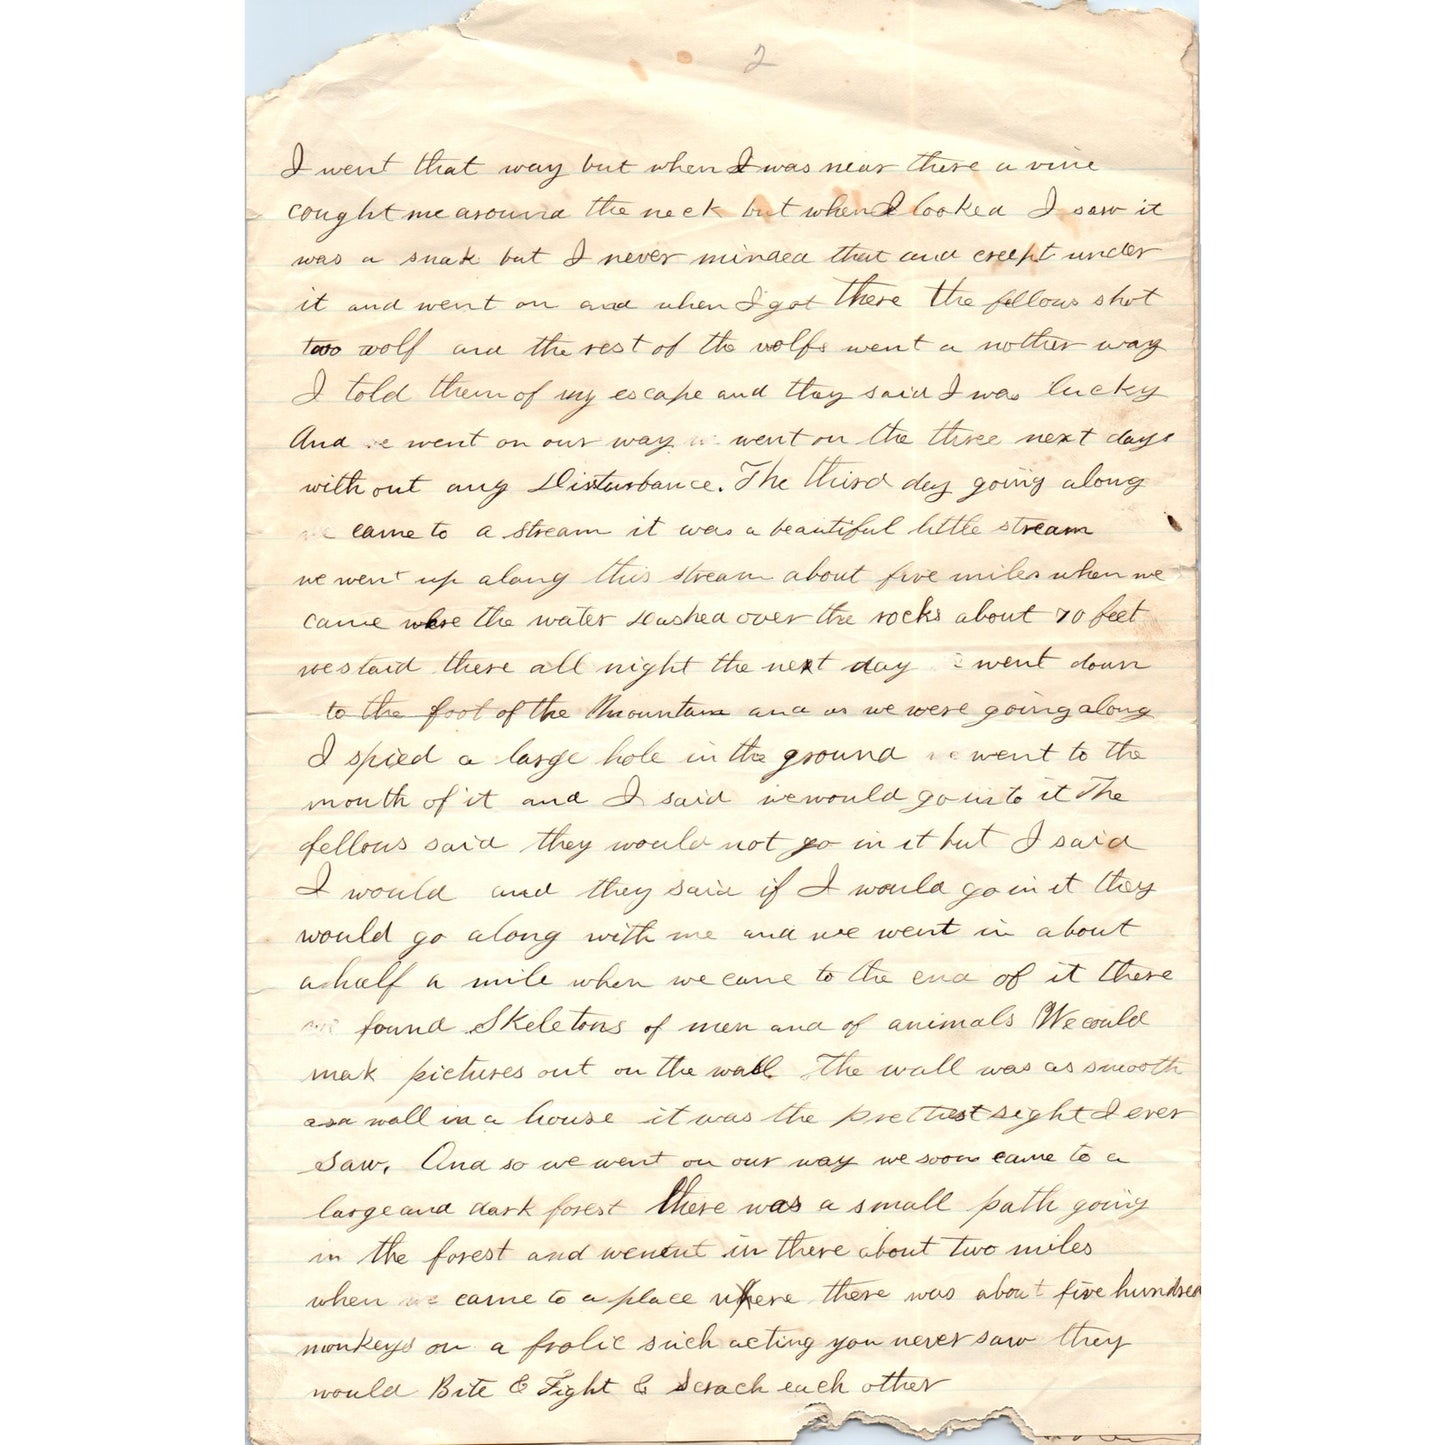 2
I went that way but when I was near there a vine
cought me around the neck but when I looked I saw it
was a snak but I never minded that and creept under
it and went on and when I got there the fellows shot
two wolf and the rest of the wolfs went a nother way
I told them of my escape and they said I was lucky
And we went on our way we went on the three next days
with out any Disturbance. The third dey going along
we came to a stream it was a beautiful little stream
we went up along this stream about five miles when we
came where the water Dashed over the rocks about 70 feet
we staid there all night the next day we went down
to the foot of the Mountain and as we were going along
I spied a large hole in the ground we went to the
mouth of it and I said we would go in to it The
fellows said they would not go in it but I said
I would and they said if I would go in it they
would go along with me and we went in about
a half a mile when we came to the end of it there
we found Skeletons of men and of animals We could
mak pictures out on the wall. The wall was as smooth
as a wall in a house it was the prettiest sight I ever
Saw. And so we went on our way we soon came to a
large and dark forest there was a small path going
in the forest and we went in there about two miles
when we came to a place where there was about five hundred
monkeys on a frolic such acting you never saw they
would Bite & Fight & Scrach each other